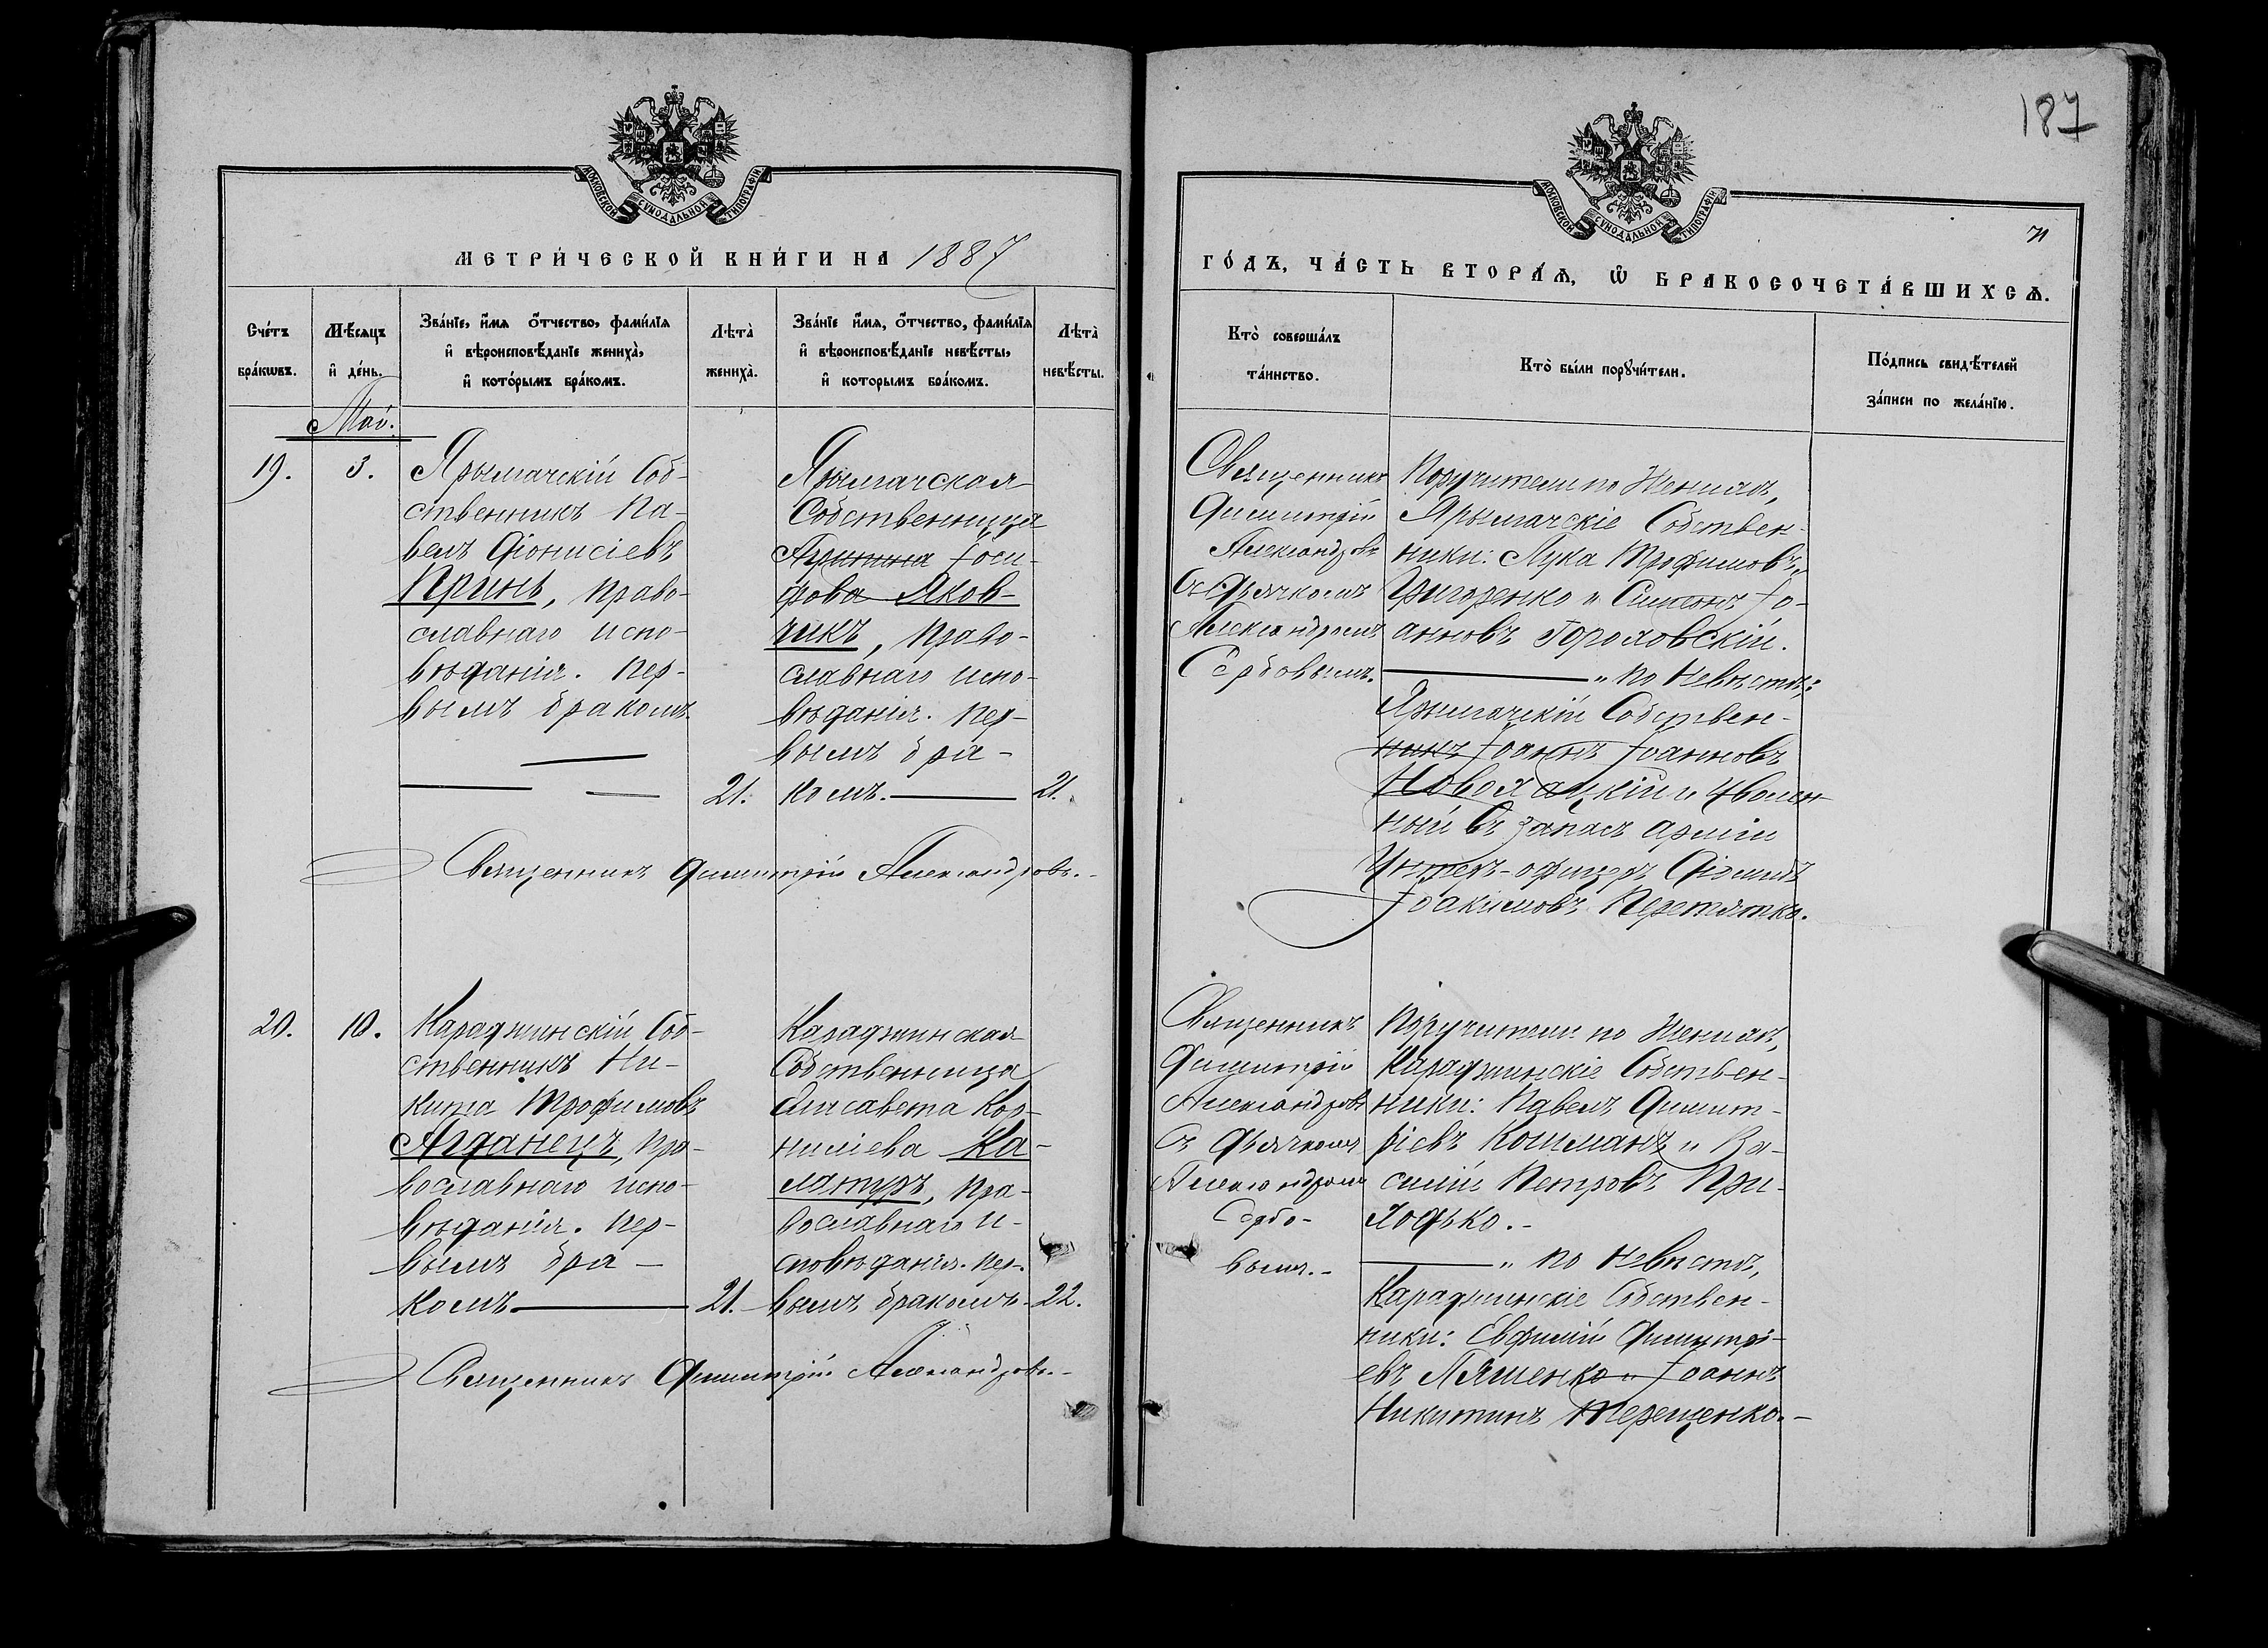 187
71
МОСКОВСКОЙ СѴНОДАЛЬНОЙ ТИПОГРАФІИ.
МОСКОВСКОЙ СѴНОДАЛЬНОЙ ТИПОГРАФІИ.
МЕТРИ́ЧЕСКОЙ КНИ́ГИ НА 1887
ГО́ДЪ, ЧА́СТЬ ВТОРА́Ѧ, Ѽ БРАКОСОЧЕТА́ВШИХСѦ.
Сче́тъ
бра́кѡвъ.
Мѣ́сяцъ
и҆ де́нь.
Зва́нїе, и҆́мя о҆́тчество, фами́лїя
и҆ вѣроисповѣ́данїе жениха̀,
и҆ кото́рымъ бра́комъ.
Лѣта̀
жениха̀.
Зва́нїе и҆́мя, о҆́тчество, фами́лїя
и҆ вѣроисповѣ́данїе невѣ́сты,
и҆ которымъ бра́комъ.
Лѣта̀
невѣ́сты.
Кто̀ соверша́лъ
та́инство.
Кто̀ бы́ли порꙋчи́тели.
По́дпись свидѣ́телей
за́писи по жела́нїю.
Май.
19.
3.
Ярылгачскій Соб-
ственникъ Па-
велъ Діонисіевъ
Принь, право-
славнаго испо-
вѣданія. Пер-
вымъ бракомъ
21.
Ярылгачская
Собственница
Агрипина Іоси-
фова Яков-
чикъ, право-
славнаго испо-
вѣданія. Пер-
вымъ бра-
комъ.
21.
Священникъ
Димитрій
Александровъ
Съ Дьячкомъ
Александромъ
Сербовымъ.
Поручители по Женихѣ,
Ярылгачскіе Собствен-
ники: Лука Трофимовъ
Григоренко и Симеонъ Іо-
анновъ Гороховскій.
" по Невѣстѣ:
Ярылгачскій Собствен-
никъ Іоаннъ Іоанновъ
и Уволен-
ный въ запасъ арміи
Унтеръ-офицеръ Діомидъ
Іоакимовъ Перетятко.
Священникъ Димитрій Александровъ.
20.
10.
Караджинскій Соб-
ственникъ Ни-
кита Трофимовъ
Агданецъ, пра-
вославнаго испо-
вѣданія. Пер-
вымъ бра-
комъ
21.
Караджинская
Собственница
Елисавета Кор-
ниліева Ка-
латуръ, пра-
вославнаго и-
сповѣданія. Пер-
вымъ бракомъ.
22.
Священникъ
Димитрій
Александровъ
Съ Дьячкомъ
Александромъ
Сербо-
вымъ.
Поручители по Женихѣ,
Караджинскіе Собствен-
ники: Павелъ Димит-
ріевъ Кошманъ и Ва-
силій Петровъ При-
ходько.
" по Невѣстѣ,
Караджинскіе Собствен-
ники: Евфимій Димитрі-
евъ Ляшенко и Іоаннъ
Никитинъ Терещенко.
Священникъ Димитрій Александровъ.